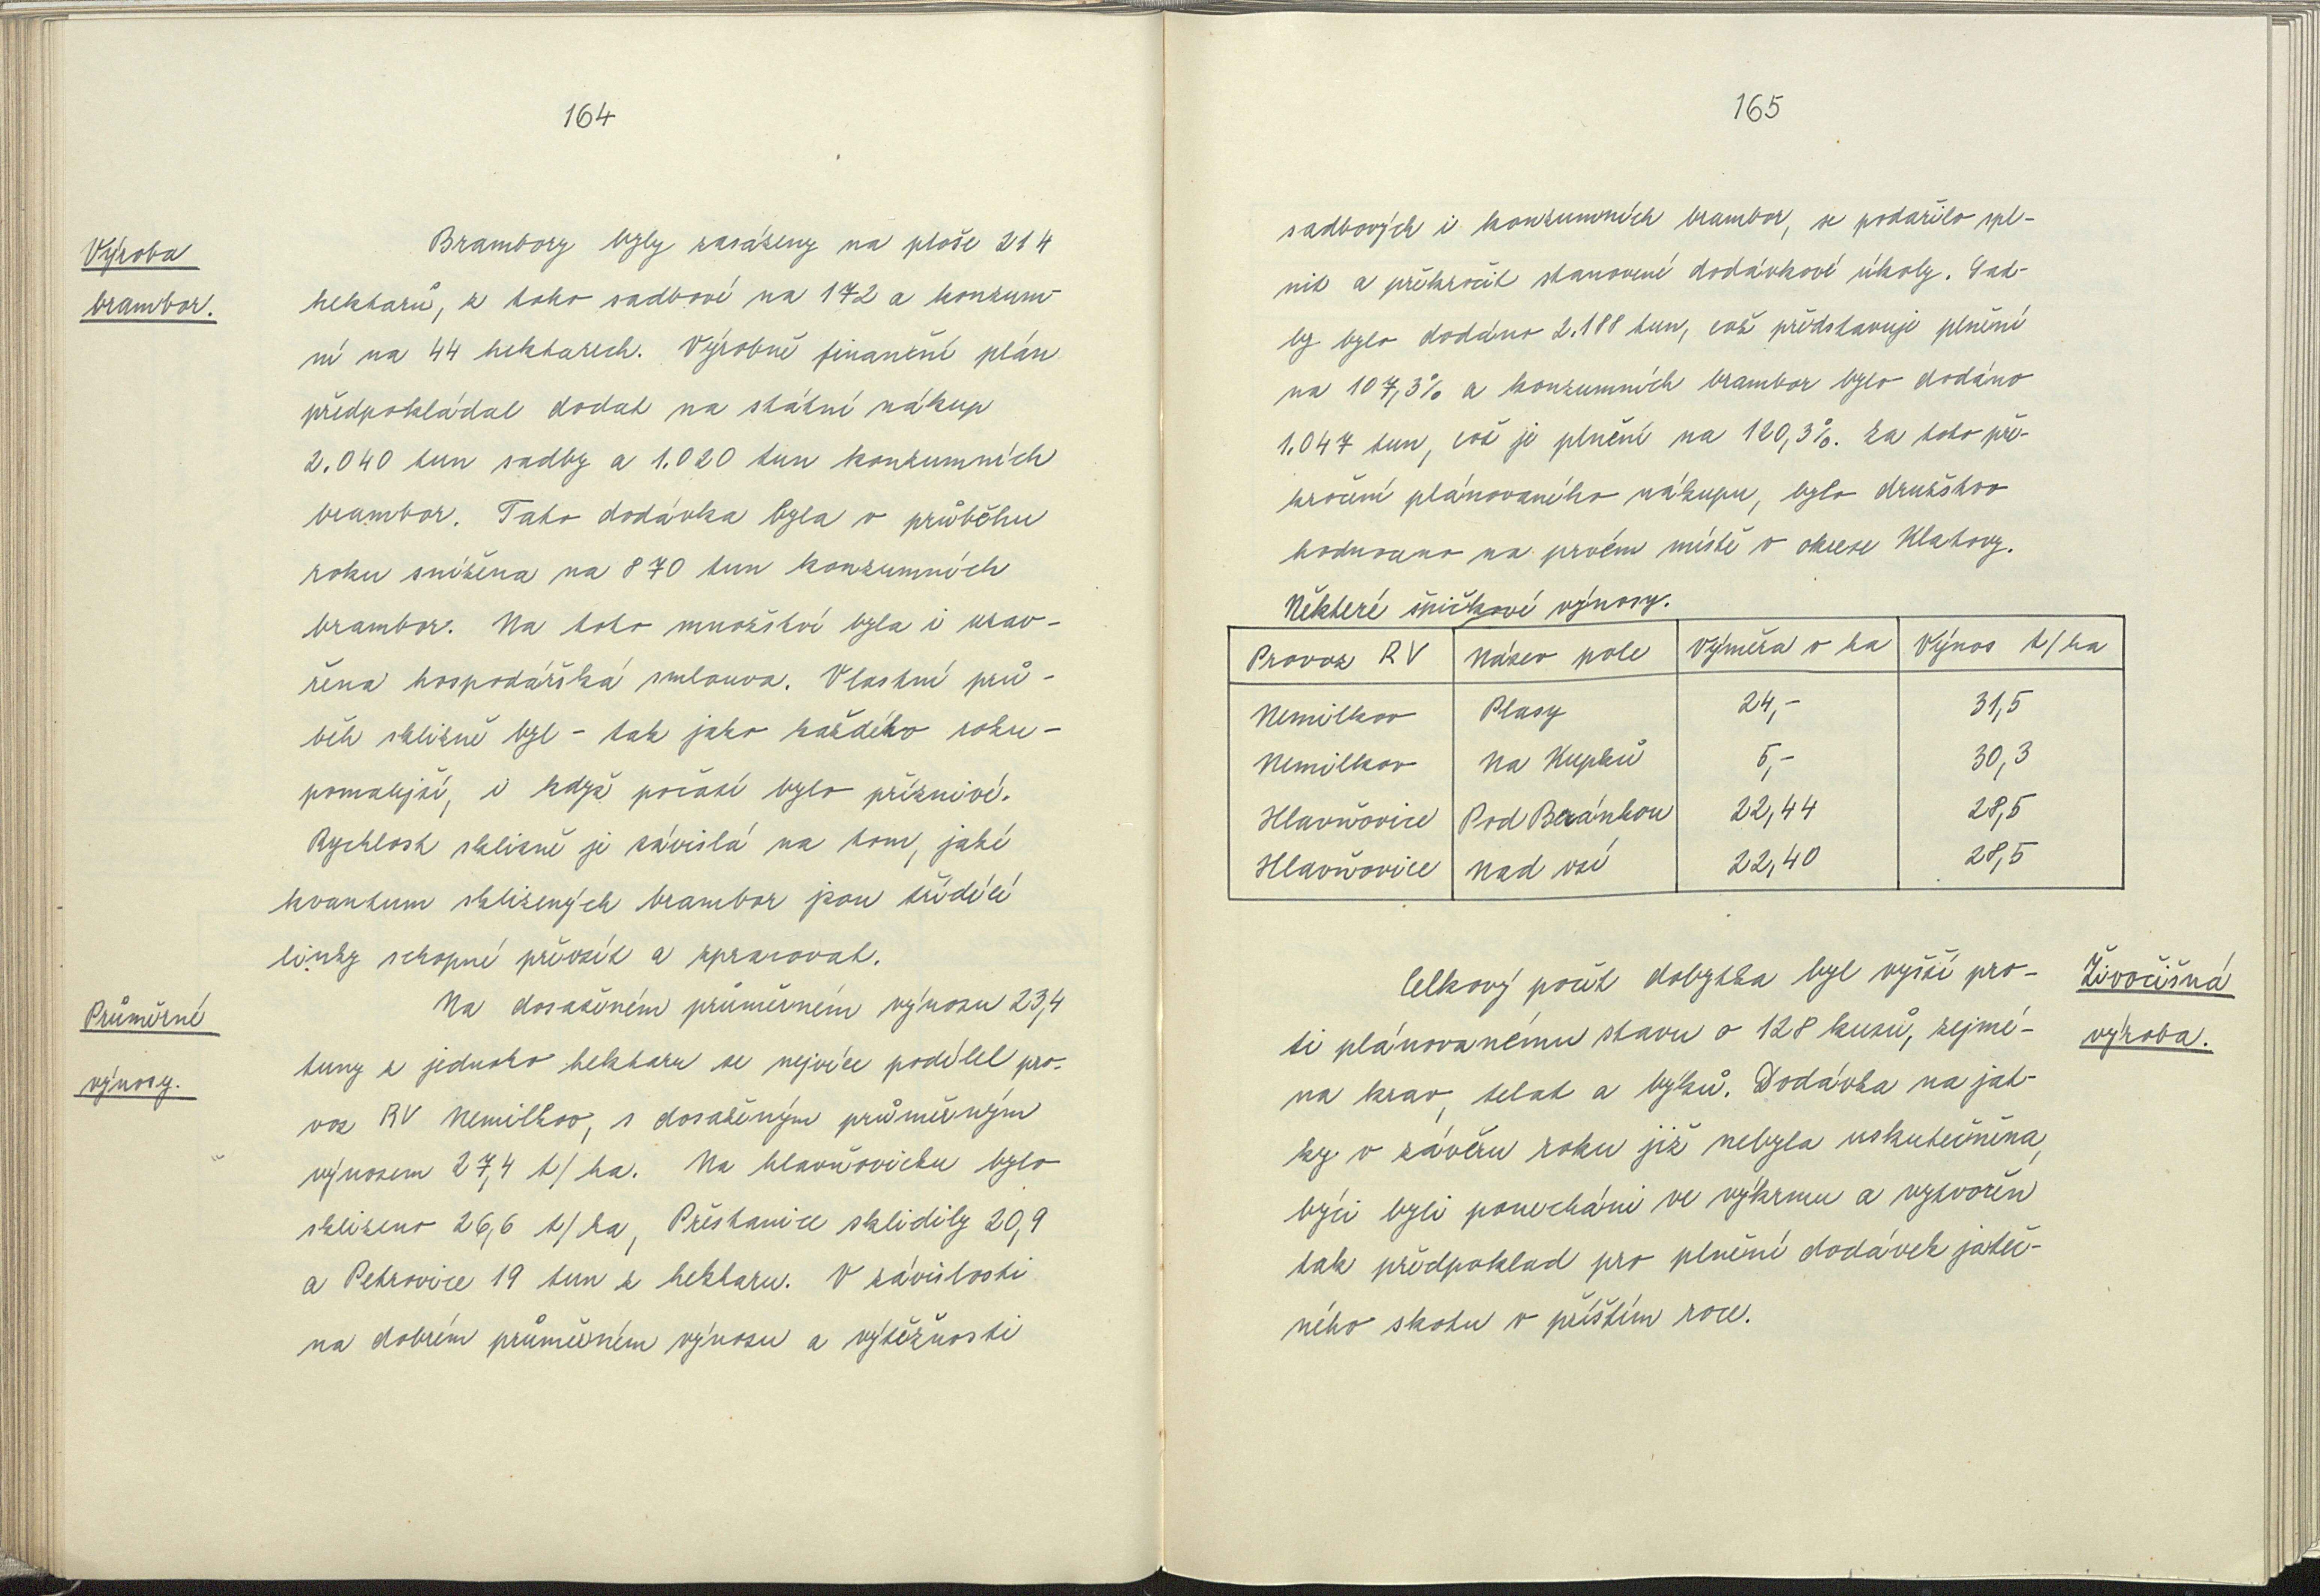 164
Výroba
brambor.
Brambory byly zasázeny na ploše 214
hektarů, z toho sadbové na 172 a konzum-
ní na 44 hektarech. Výrobně finanční plán
předpokládal dodat na státní nákup
2.040 tun sadby a 1.020 tun konzumních
brambor. Tato dodávka byla v průběhu
roku snížena na 870 tun konzumních
brambor. Na toto množství byla i uzav-
řena hospodářská smlouva. Vlastní prů-
běh sklizně byl - tak jako každého roku -
pomalejší, i když počasí bylo příznivé.
Rychlost sklizně je závislá na tom, jaké
kvantum sklizených brambor jsou třídící
linky schopné převzít a zpracovat.
Průměrné
výnosy.
Na dosaženém průměrném výnosu 23,4
tuny z jednoho hektaru se nejvíce podílel pro-
voz RV Nemilkov, s dosaženým průměrným
výnosem 27,4 t/ha. Na hlavňovicku bylo
sklizeno 26,6 t/ha, Přestanice sklidily 20,9
a Petrovice 19 tun z hektaru. V závislosti
na dobrém průměrném výnosu a výtěžnosti
165
sadbových i konzumních brambor, se podařilo spl-
nit a překročit stanovené dodávkové úkoly. Sad-
by bylo dodáno 2.188 tun, což představuje plnění
na 107,3% a konzumních brambor bylo dodáno
1.047 tun, což je plnění na 120,3%. Za toto pře-
kročení plánovaného nákupu, bylo družstvo
hodnoceno na prvém místě v okrese Klatovy.
Některé špičkové výnosy.
Provoz RV Název pole Výměra v ha Výnos t/ha
Nemilkov Plasy 24,- 31,5
Nemilkov Na Kupků 5,- 30,3
Hlavňovice Pod Beránkou 22,44 28,5
Hlavňovice Nad vsí 22,40 28,5
Živočišná
výroba.
Celkový počet dobytka byl vyšší pro-
ti plánovanému stavu o 128 kusů, zejmé-
na krav, telat a býků. Dodávka na jat-
ky v závěru roku již nebyla uskutečněna,
býci byli ponecháni ve výkrmu a vytvořen
tak předpoklad pro plnění dodávek jateč-
ného skotu v příštím roce.